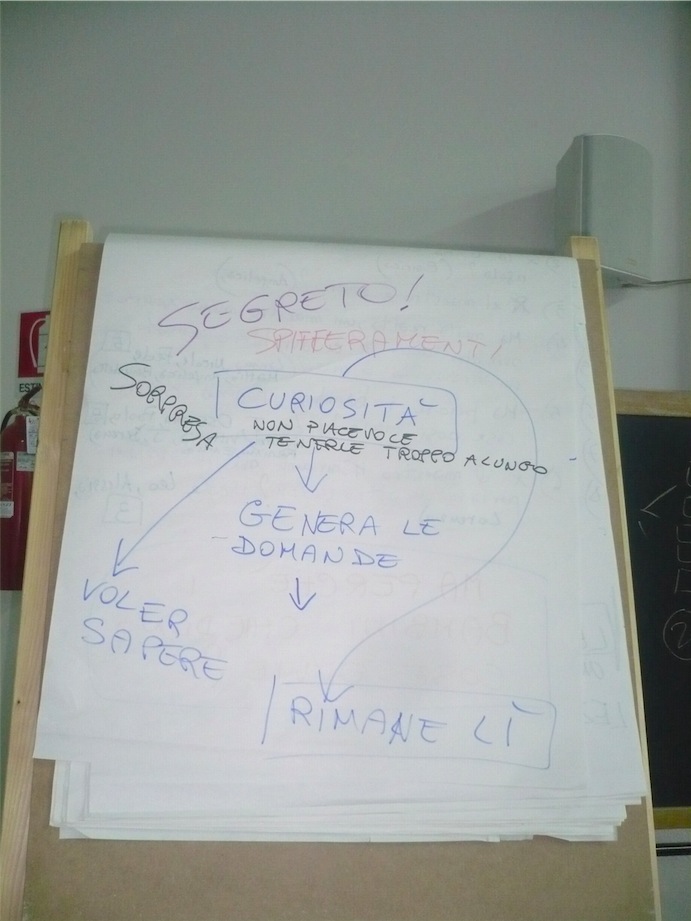 SEGRETO!
SPIFFERAMENTI
SORPRESA
CURIOSITÀ
NON PIACEVOLE
TENERLE TROPPO A LUNGO
GENERA LE
DOMANDE
VOLER
SAPERE
RIMANE LÌ
EST